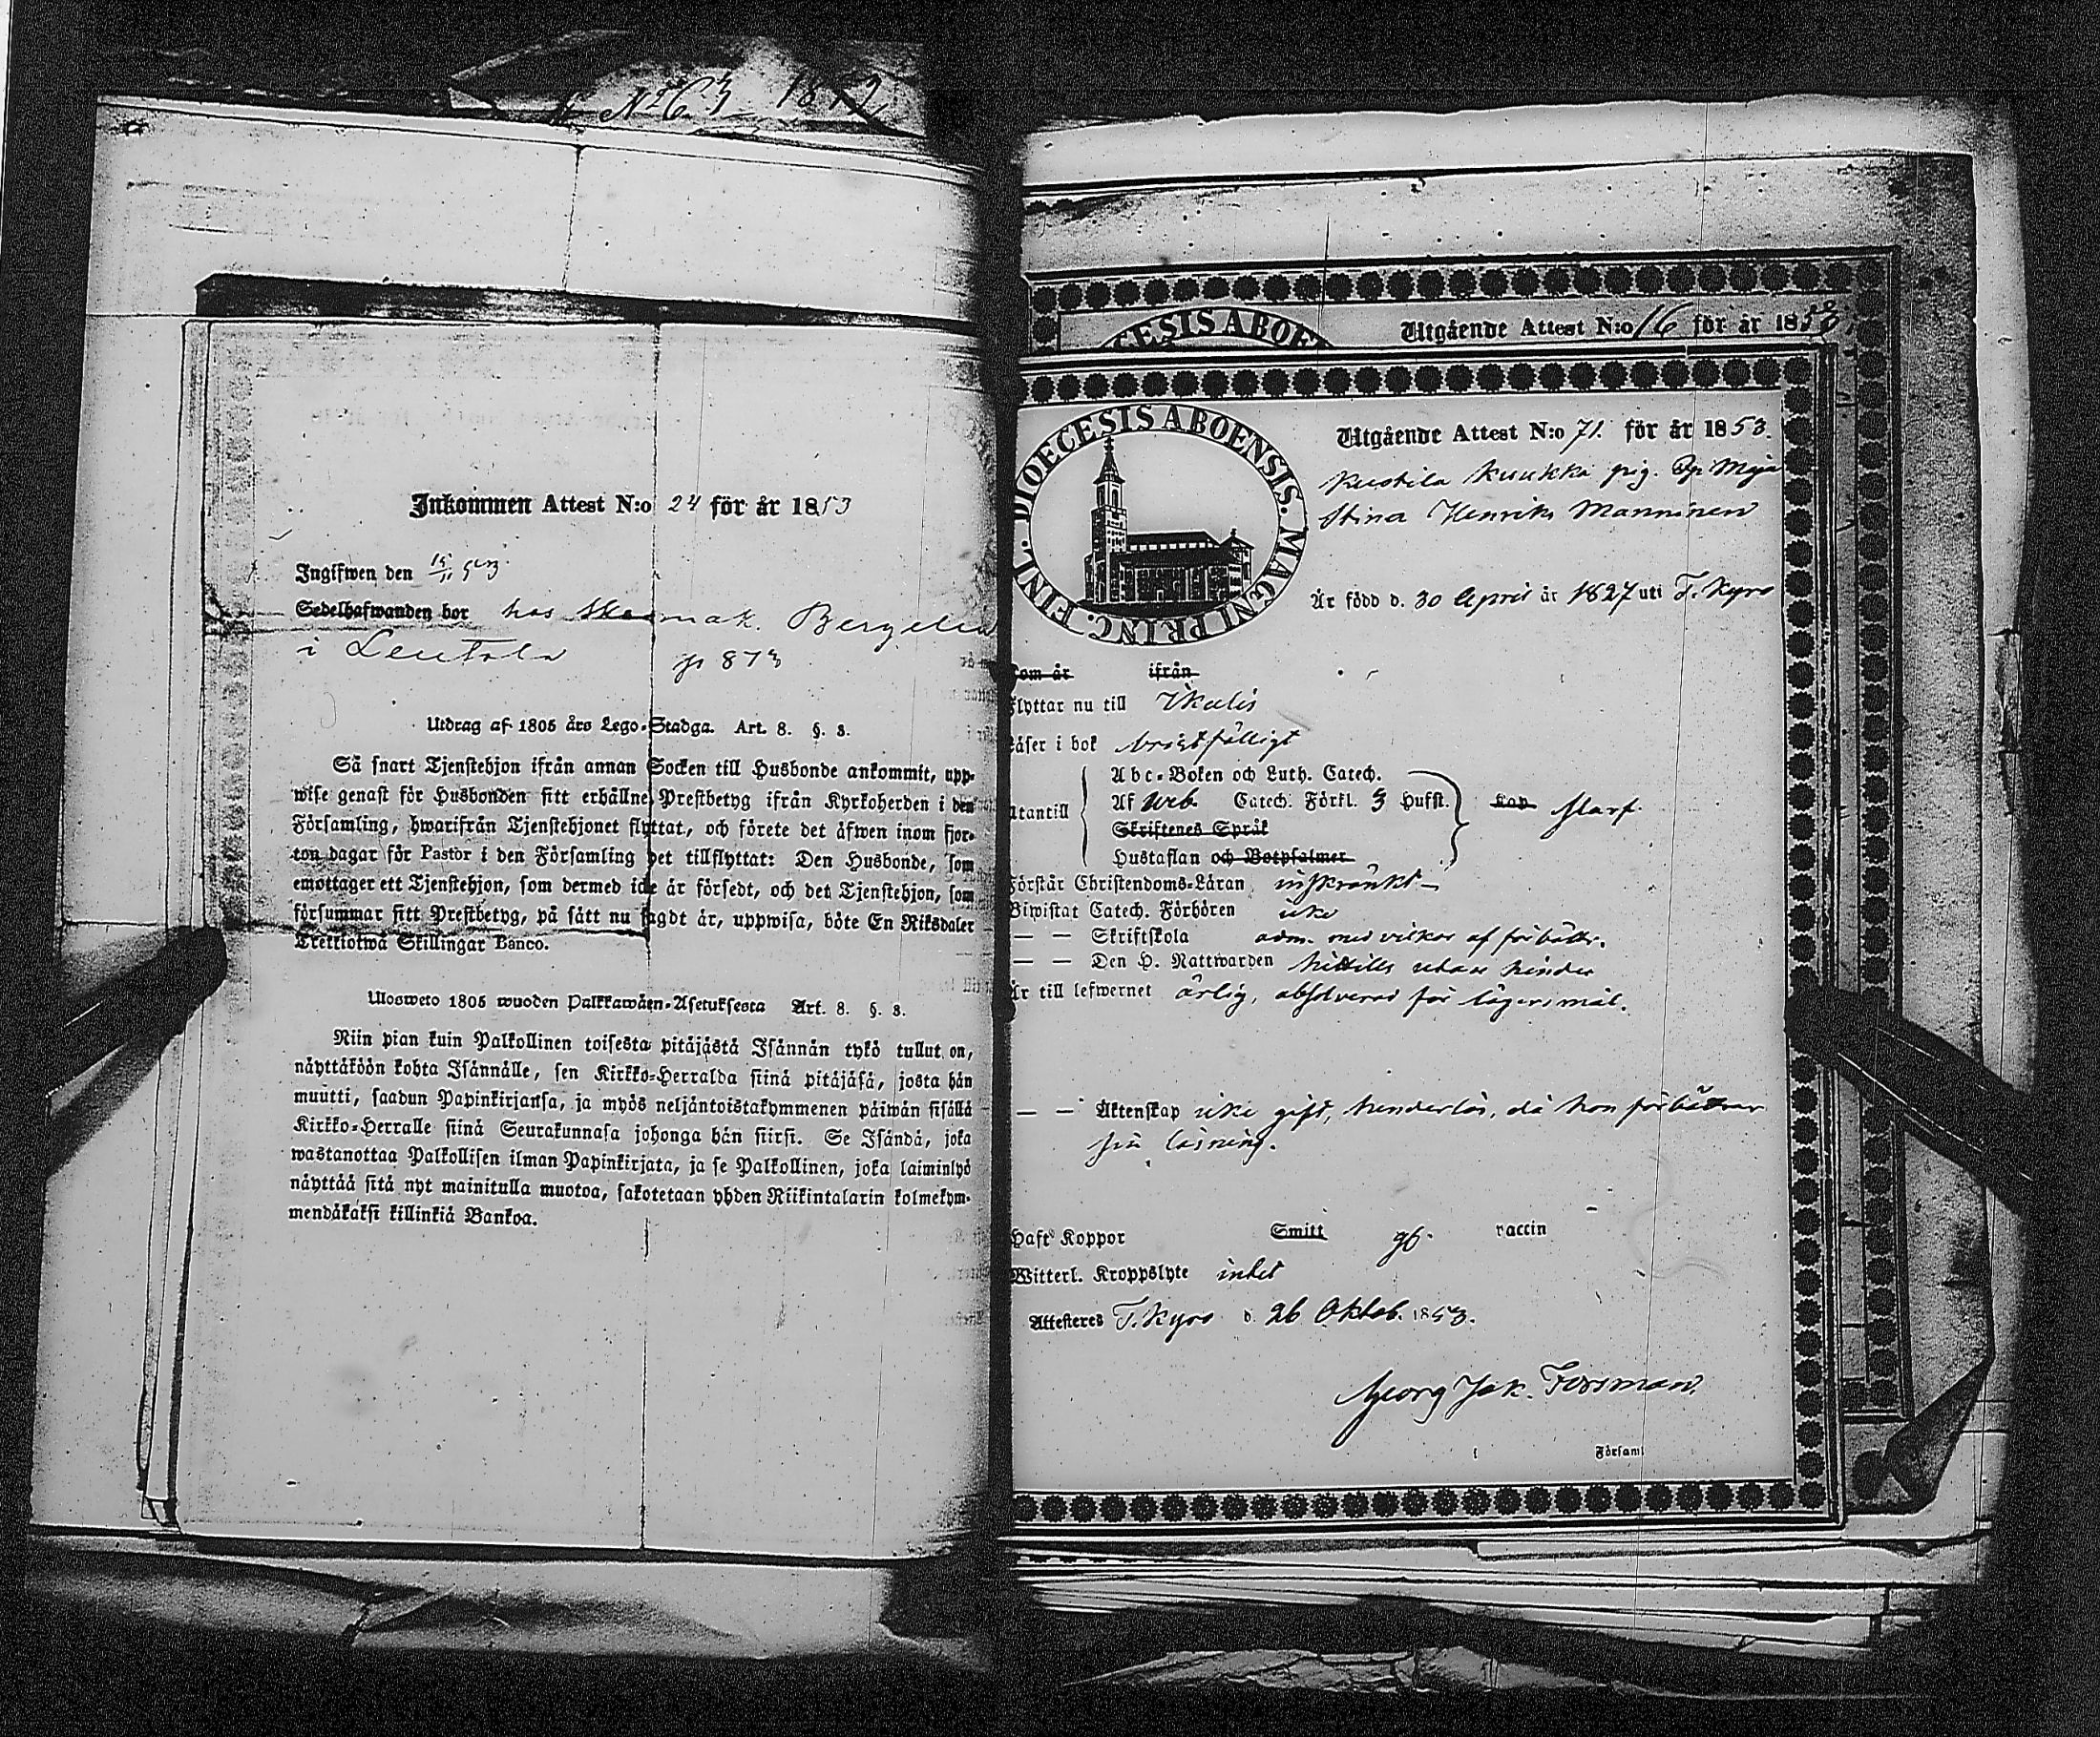 1852
Inkommen Attest N:o 24 för år 1853
Ingifwen den 15/11 53.
Sedelhafwanden bor hos mak. Bergelin
i Leutola p 873
Utdrag af 1805 års Lego-Stadga. Art. 8. §. 8.
Så snart Tjenstehjon ifrån annan Socken till Husbonde ankommit, upp-
wise genast för Husbonden sitt erhållne Prestbetyg ifrån Kyrkoherden i den
Församling, hwarifrån Tjenstehjonet flyttat, och förete det äfwen inom fjor-
ton dagar för Pastor i den Församling det tillflyttat: Den Husbonde, som
emottager ett Tjenstehjon, som dermed icke är försedt, och det Tjenstehjon, som
försummar sitt Prestbetyg, på sätt nu sagdt är, uppwisa, böte En Riksdaler
Trettiotwå Skillingar Banco.
Ulosweto 1805 wuoden Palkkawäen-Asetuksesta Art. 8. §. 8.
Niin pian kuin Palkollinen toisesta pitäjästä Isännän tykö tullut on,
näyttäköön kohta Isännälle, sen Kirkko-Herralda siinä pitäjäsä, josta hän
muutti, saadun Papinkirjansa, ja myös neljäntoistakymmenen päiwän sisällä
Kirkko-Herralle siinä Seurakunnasa johonga hän siirsi. Se Isändä, joka
wastanottaa Palkollisen ilman Papinkirjata, ja se Palkollinen, joka laiminlyö
näyttää sitä nyt mainitulla muotoa, sakotetaan yhden Riikintalarin kolmekym-
mendäkaksi killinkiä Bankoa.
Utgående Attest N:o 16 för år 1853.
DIOECESIS ABOENSIS. MAGNI PRINC. FINL.
Utgående Attest N:o 71. för år 1853.
Kustila Kuukka pig. Maja
Stina Henriks Manninen
Är född d. 30 April år 1827 uti T. Kyro
kom år ifrån
Flyttar nu till Ikalis
Läser i bok bristfälligt
Utantill
Abc-Boken och Luth. Catech.
Af Web. Catech. Förkl. 3 Hufst.
Skriftenes Språk
Hustaflan och Botpsalmer
slarf.
Förstår Christendoms-Läran inskränkt
Biwistat Catech. Förhören icke
— — Skriftskola adm. med vilkor af förbättr.
— — Den H. Nattwarden hittills utan hinder
Är till lefwernet ärlig, absolverad för lägersmål.
— — Äktenskap icke gift, hinderlös, då hon förbättrar
sin läsning.
Haft Koppor Smitt gb. vaccin
Witterl. Kroppslyte intet
Attesteres T. Kyro d. 26 Oktob. 1853.
Georg Jak. Forsman.
Församl